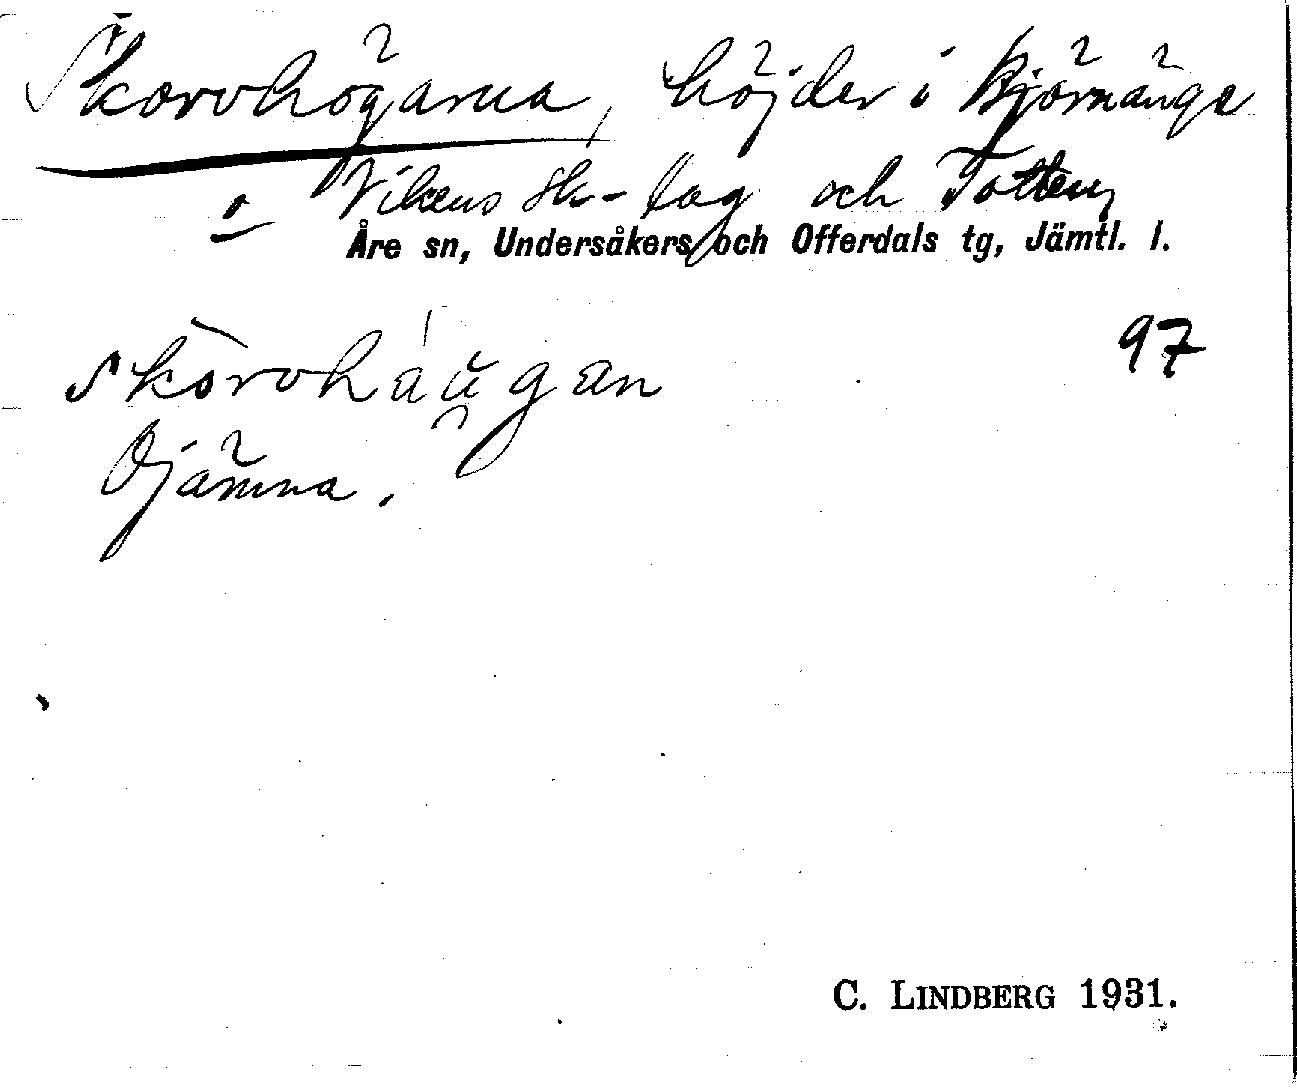 Skorvhögarna, höjder i Björnänge
o Vikens sk-lag och Totten,
Åre sn, Undersåkers och Offerdals tg, Jämtl. l.
skòrvhàu̯gan 97
Ojämna.
C. LINDBERG 1931.